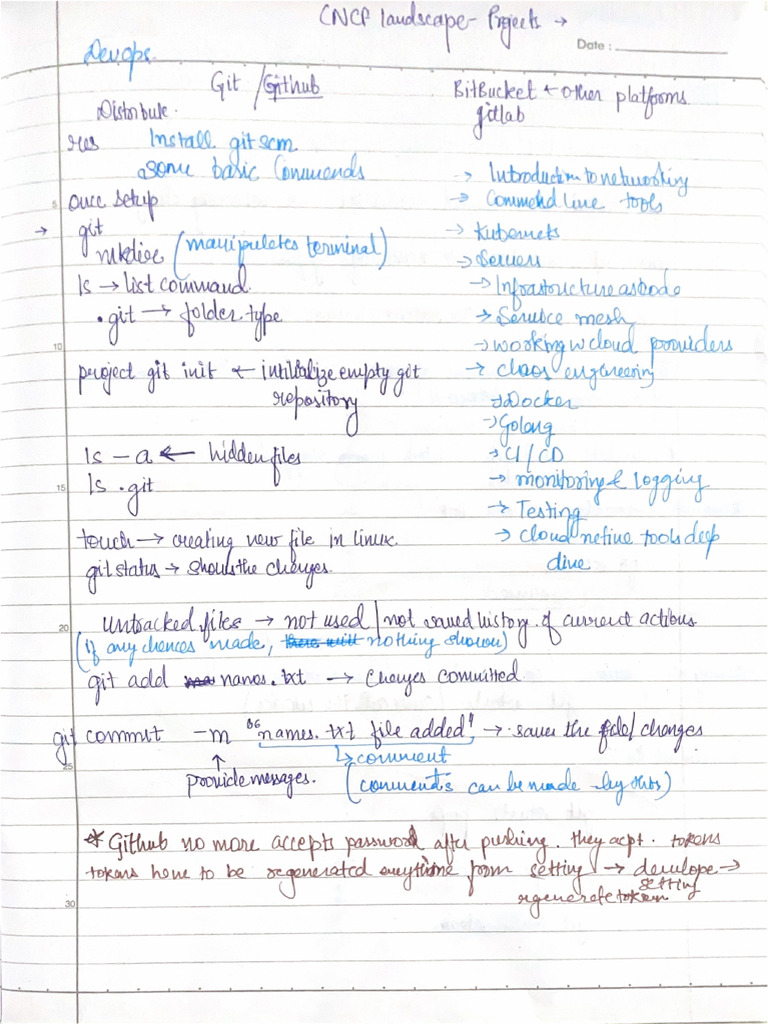 CNCF landscape - Projects →
Date :
Devops
Git / Github
BitBucket ← other platforms
gitlab
Distribute.
Install git scm
some basic Commands
once setup
→ git
mkdire (manipulates terminal)
ls → list command
.git → folder type
project git init ← initilialize empty git
repository
ls -a ← hidden files
ls .git
touch → creating new file in linux.
git status → shows the changes.
→ Introduction to networking
→ Commond line tools
→ Kubernets
→ Servers
→ Infrastructure as code
→ Service mesh
→ working w cloud providers
→ chaos engineering
→ Docker
→ Golang
→ CI/CD
→ monitoring & logging
→ Testing
→ cloud netive tools deep
dive
5
10
15
20
25
30
untracked files → not used / not saved history of current actions
(if any chences made, there will nothing shown)
git add names.txt → Changes committed
git commit -m "names.txt file added" → saves the file/changes
↑ ↳ comment
provide messages. (comments can be made by this)
* Github no more accepts password after pushing. they acpt. tokens
tokens have to be regenerated everytime from setting → develope →
setting
regenerate token